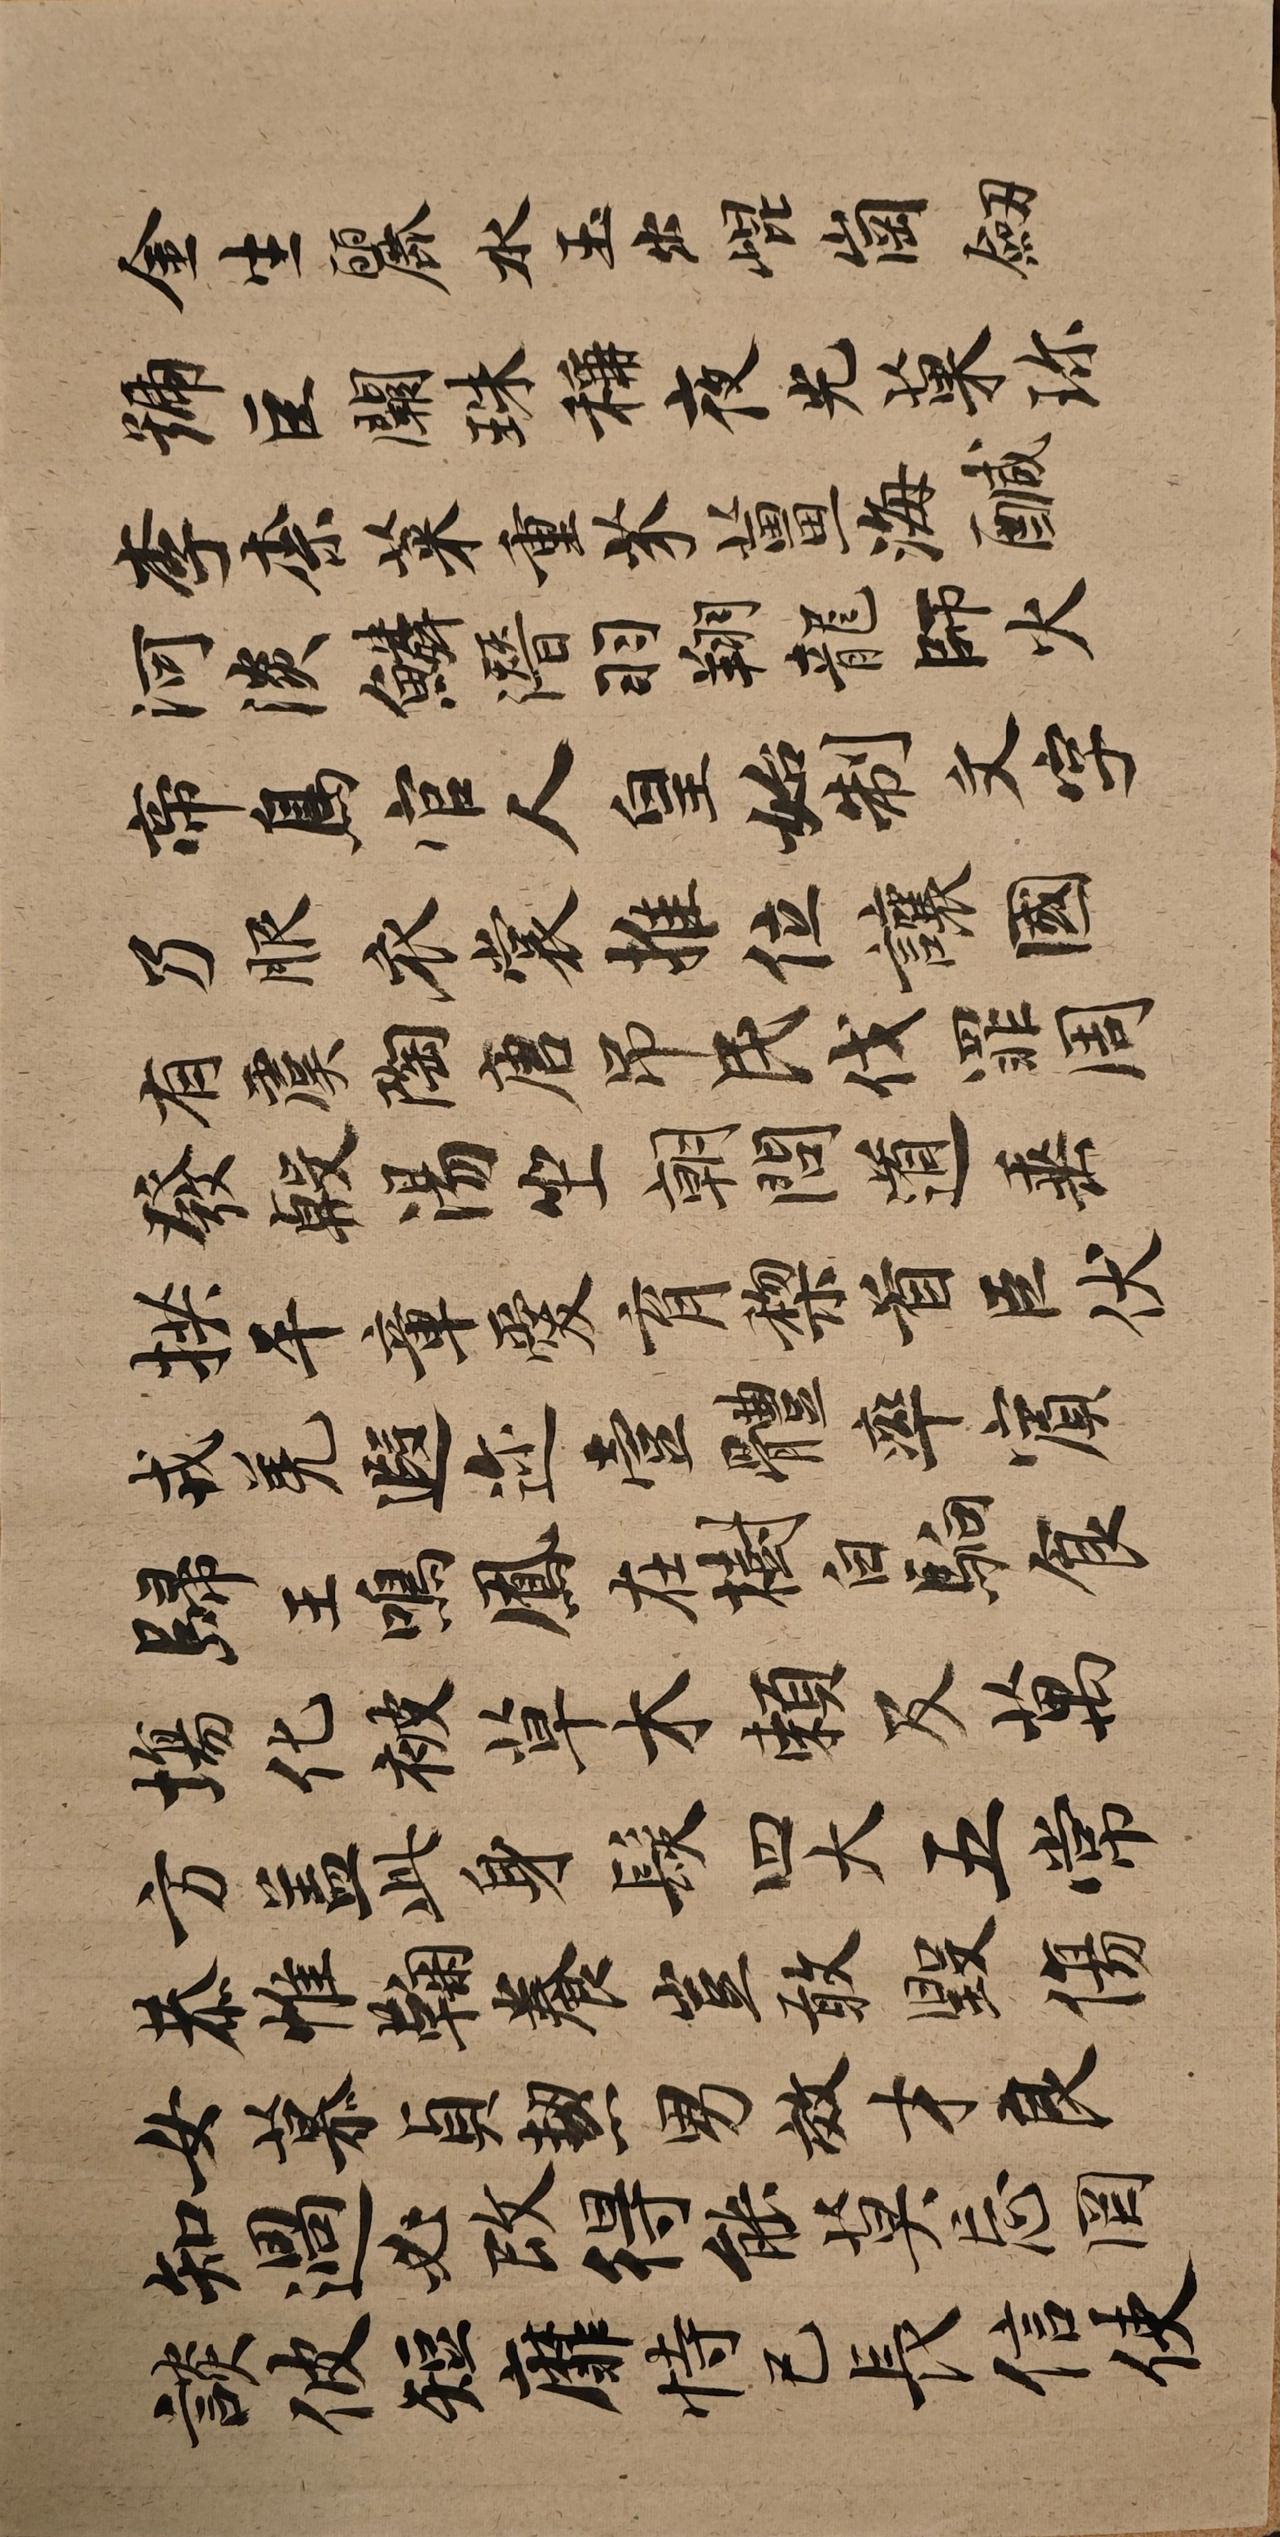 金生麗水玉出崐崗劔
號巨闕珠稱夜光菓珎
李柰菜重芥薑海醎
河淡鱗潛羽翔龍師火
帝鳥官人皇始制文字
乃服衣裳推位讓國
有虞陶唐吊民伐罪周
發殷湯坐朝問道垂
拱平章愛育黎首臣伏
戎羌遐迩壹體率賓
歸王鳴鳳在樹白駒食
場化被草木賴及萬
方蓋此身髮四大五常
恭惟鞠養豈敢毀傷
女慕貞絜男效才良
知過必改得能莫忘罔
談彼短靡恃己長信使